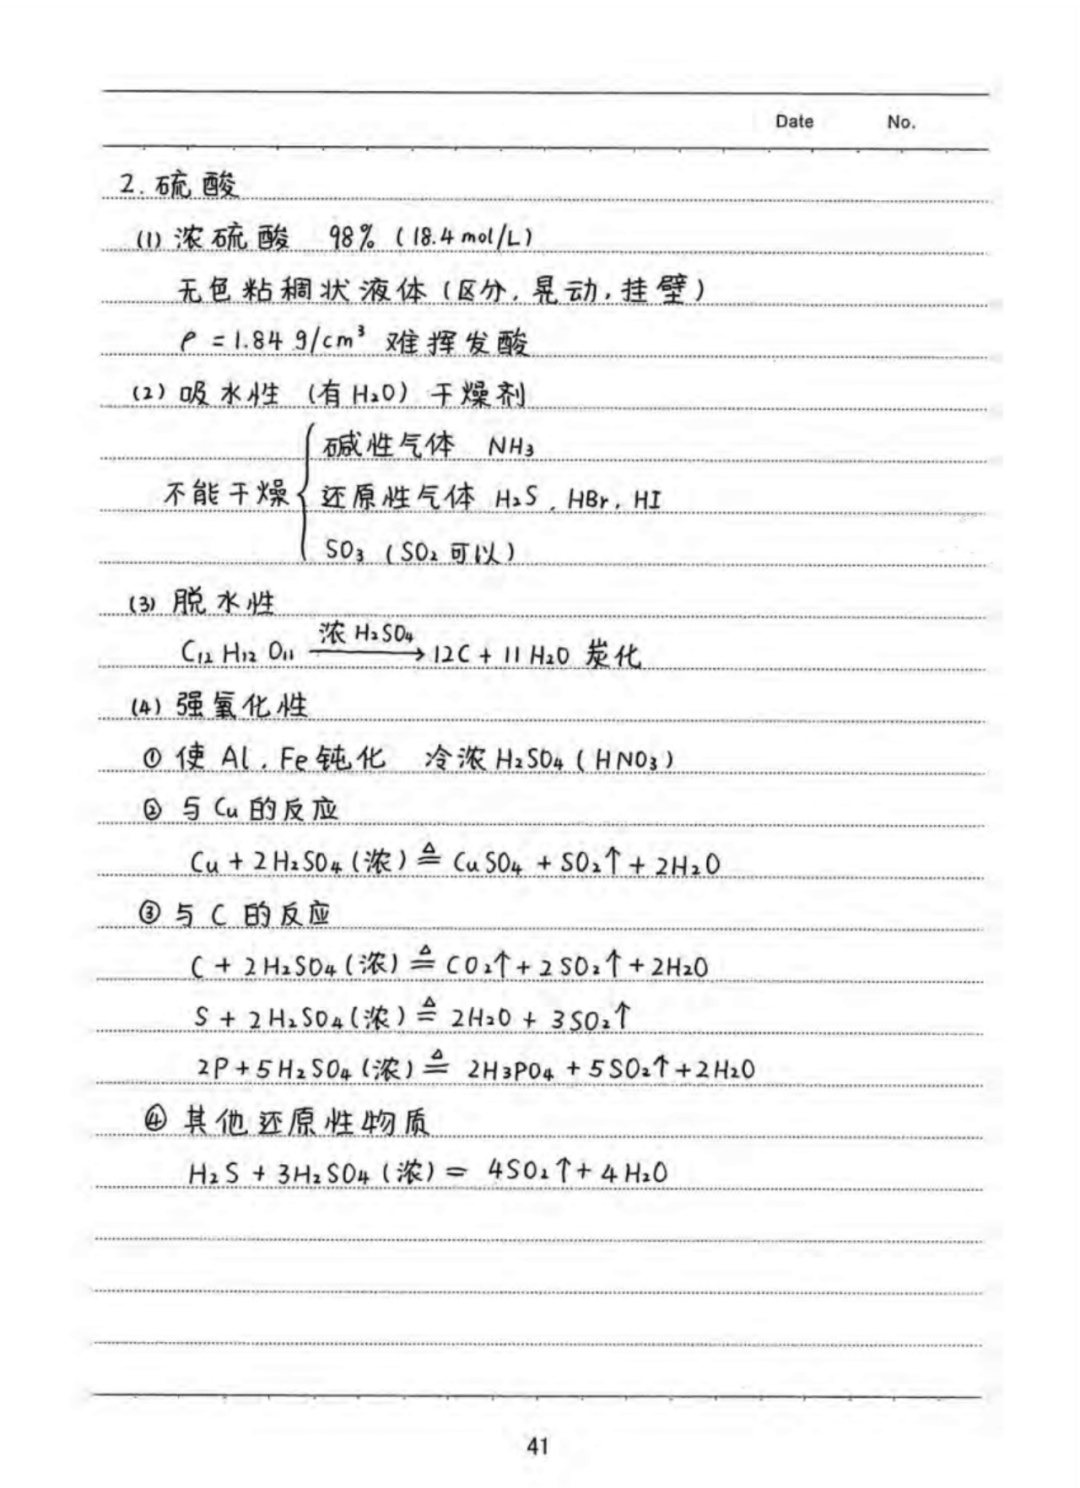 Date No.
2. 硫酸
(1) 浓硫酸 98% (18.4 mol/L)
无色粘稠状液体 (区分, 晃动, 挂壁)
ρ = 1.84 g/cm³ 难挥发酸
(2) 吸水性 (有 H₂O) 干燥剂
碱性气体 NH₃
不能干燥 { 还原性气体 H₂S, HBr, HI
SO₃ (SO₂ 可以)
(3) 脱水性
C₁₂ H₁₂ O₁₁ —浓 H₂SO₄→ 12C + 11 H₂O 炭化
(4) 强氧化性
① 使 Al, Fe 钝化 冷浓 H₂SO₄ (HNO₃)
② 与 Cu 的反应
Cu + 2H₂SO₄ (浓) ≜ CuSO₄ + SO₂↑ + 2H₂O
③ 与 C 的反应
C + 2H₂SO₄ (浓) ≜ CO₂↑ + 2SO₂↑ + 2H₂O
S + 2H₂SO₄ (浓) ≜ 2H₂O + 3SO₂↑
2P + 5H₂SO₄ (浓) ≜ 2H₃PO₄ + 5SO₂↑ + 2H₂O
④ 其他还原性物质
H₂S + 3H₂SO₄ (浓) = 4SO₂↑ + 4H₂O
41